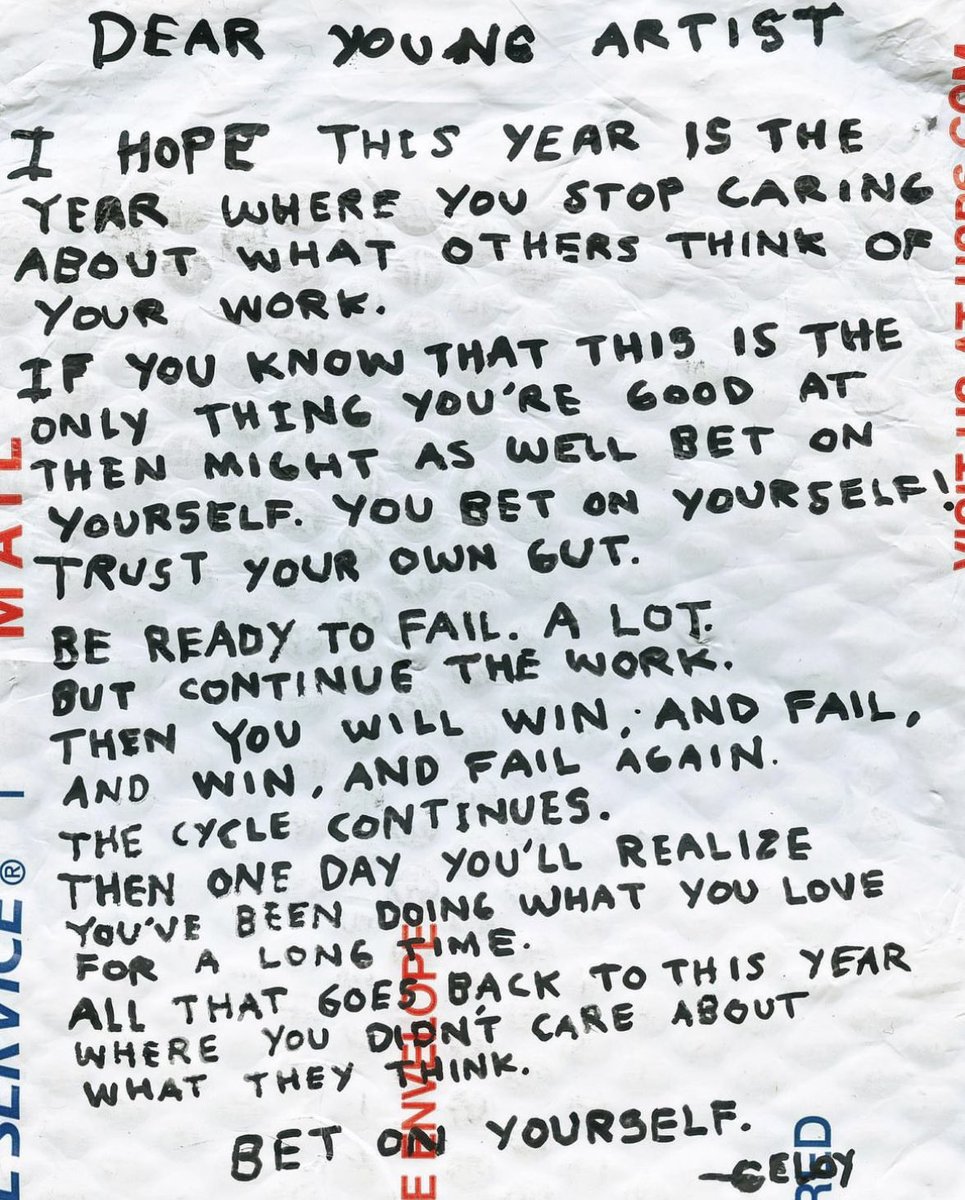 DEAR YOUNG ARTIST
I HOPE THIS YEAR IS THE
YEAR WHERE YOU STOP CARING
ABOUT WHAT OTHERS THINK OF
YOUR WORK.
IF YOU KNOW THAT THIS IS THE
ONLY THING YOU'RE GOOD AT
THEN MIGHT AS WELL BET ON
YOURSELF. YOU BET ON YOURSELF!
TRUST YOUR OWN GUT.
BE READY TO FAIL. A LOT.
BUT CONTINUE THE WORK.
THEN YOU WILL WIN, AND FAIL,
AND WIN, AND FAIL AGAIN.
THE CYCLE CONTINUES.
THEN ONE DAY YOU'LL REALIZE
YOU'VE BEEN DOING WHAT YOU LOVE
FOR A LONG TIME.
ALL THAT GOES BACK TO THIS YEAR
WHERE YOU DIDN'T CARE ABOUT
WHAT THEY THINK.
BET ON YOURSELF.
—GELOY
MAIL
SERVICE®
ENVELOPE
VISIT US AT USPS.COM
RED